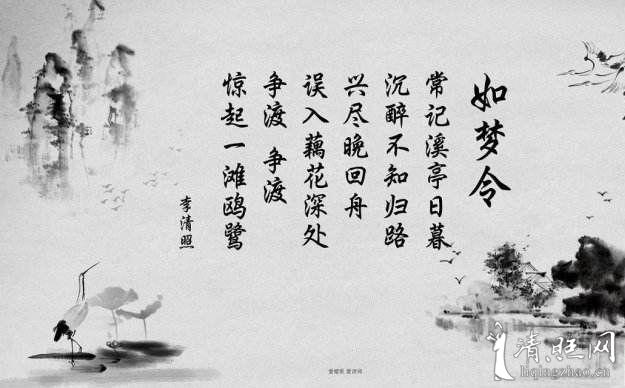 如梦令
常记溪亭日暮
沉醉不知归路
兴尽晚回舟
误入藕花深处
争渡 争渡
惊起一滩鸥鹭
李清照
清旺网
liqingzhao.cn